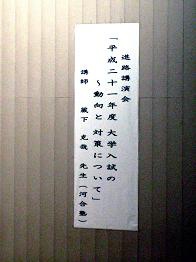 進路講演会
「平成二十一年度 大学入試の
～動向と対策について」
講師 蔵下 克哉 先生(河合塾)